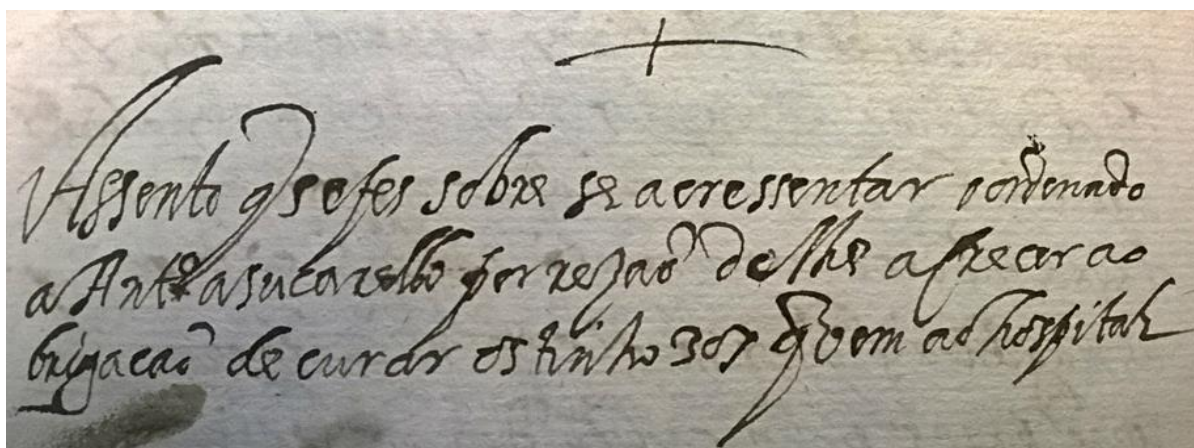 Assento q̃ se fes sobre se acressentar o ordenado
a Ant.º asucarelho por rezaõ de lhe acrecer a o
brigacaõ de curar os tinhozos q̃ vem ao hospital